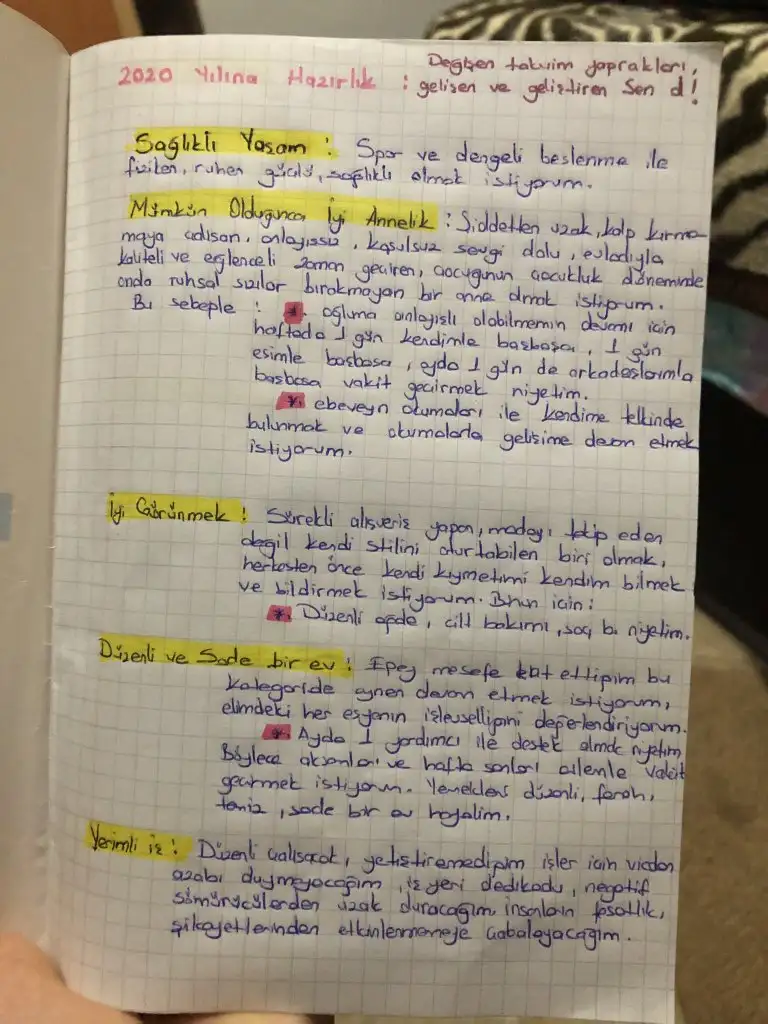 Değişen takvim yaprakları,
2020 Yılına Hazırlık : gelişen ve geliştiren Sen ol!
Sağlıklı Yaşam : Spor ve dengeli beslenme ile
fiziken, ruhen güçlü, sağlıklı olmak istiyorum.
Mümkün Olduğunca İyi Annelik : Şiddetten uzak, kalp kırma-
maya çalışan, anlayışlı, koşulsuz sevgi dolu, evladıyla
kaliteli ve eğlenceli zaman geçiren, çocuğunun çocukluk döneminde
onda ruhsal sızılar bırakmayan bir anne olmak istiyorum.
Bu sebeple : *. oğluma anlayışlı olabilmemin devamı için
haftada 1 gün kendimle başbaşa, 1 gün
eşimle başbaşa, ayda 1 gün de arkadaşlarımla
başbaşa vakit geçirmek niyetim.
*. ebeveyn okumaları ile kendime telkinde
bulunmak ve okumalarla gelişime devam etmek
istiyorum.
İyi Görünmek : Sürekli alışveriş yapan, modayı takip eden
değil kendi stilini oturtabilen biri olmak,
herkesten önce kendi kıymetimi kendim bilmek
ve bildirmek istiyorum. Bunun için :
*. Düzenli, cilt bakımı, saç bı niyetim.
Düzenli ve Sade bir ev : Epey mesafe kat ettiğim bu
kategoride aynen devam etmek istiyorum,
elimdeki her eşyanın işlevselliğini değerlendiriyorum.
*. Ayda 1 yardımcı ile destek almak niyetim
Böylece akşamları ve hafta sonları ailemle vakit
geçirmek istiyorum. Yemekleri düzenli, ferah,
temiz, sade bir ev hayalim.
Verimli iş : Düzenli çalışacak, yetiştiremediğim işler için vicdan
azabı duymayacağım, iş yeri dedikodu, negatif
sömürücülerden uzak duracağım, insanların fesatlık,
şikayetlerinden etkinlenmemeye çabalayacağım.